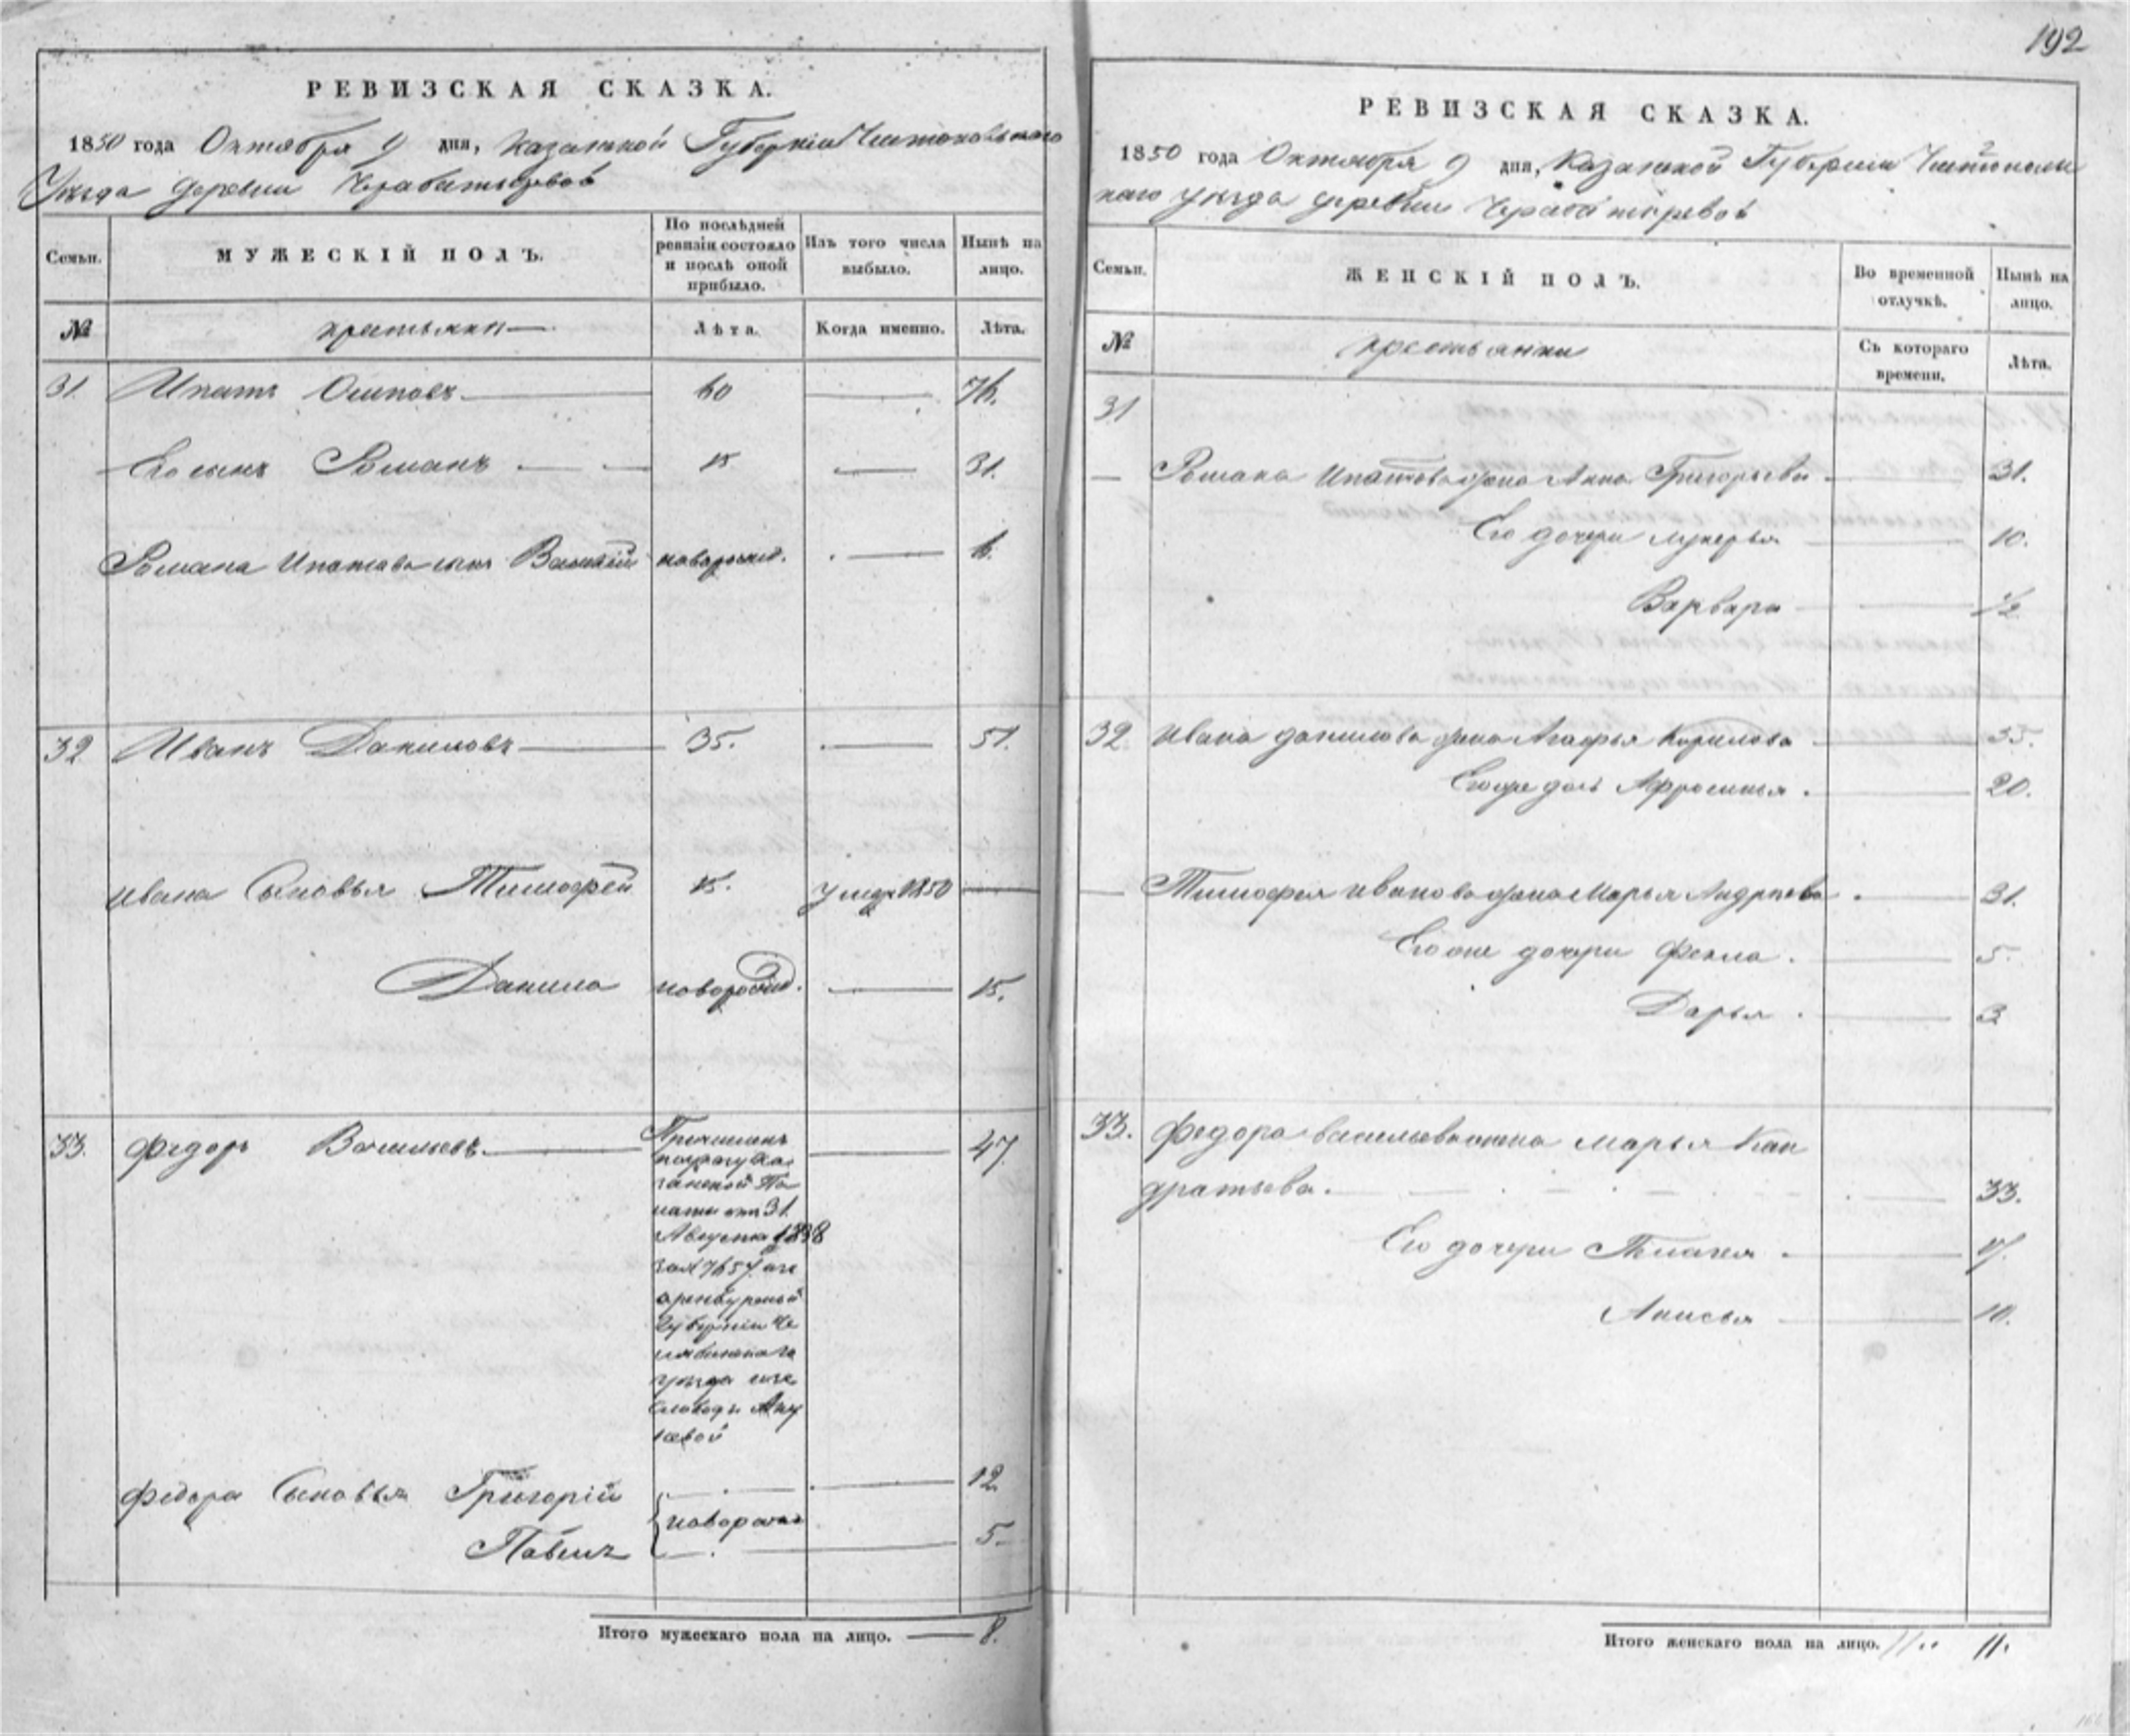 РЕВИЗСКАЯ СКАЗКА.
1850 года Октября 9 дня, Казанской Губернии Чистопольскаго
Уѣзда деревни
Семьи.
МУЖЕСКІЙ ПОЛЪ.
По послѣдней ревизіи состояло и послѣ оной прибыло.
Изъ того числа выбыло.
Нынѣ на лицо.
№
крестьяне
Лѣта.
Когда именно.
Лѣта.
31. Ипатъ Осиповъ 60 76.
Его сынъ Романъ 15 31.
Романа Ипатова сынъ Василій новорожд. 6.
32 Иванъ Даниловъ 35. 51.
Ивана Сыновья Тимофей 15. умер 1850
Данило новорожд. 15.
33. Федоръ Васильевъ 47.
Причисленъ
по указу Ка
занской Па
латы отъ 31
Августа 1838
за № 7657 изъ
оренбургской
Губерніи Че
лябинскаго
уѣзда изъ
слободы
Федора Сыновья Григорій 12
новорожд
Павелъ 5.
Итого мужескаго пола на лицо. 8.
192
РЕВИЗСКАЯ СКАЗКА.
1850 года Октября 9 дня, Казанской Губерніи Чистополь
скаго уѣзда деревни
Семьи.
ЖЕНСКІЙ ПОЛЪ.
Во временной отлучкѣ.
Нынѣ на лицо.
№
крестьянки
Съ котораго времени.
Лѣта.
31
Романа Ипатова жена Анна Григорьева 31.
Его дочери Лукерья 10.
Варвара 1/2
32 Ивана данилова жена Агафья Кирилова 35.
Его же дочь Афросинья. 20.
Тимофея иванова жена Марья Андреева 31.
Его же дочери Фекла. 5.
Дарья. 3
33. Федора васильева жена Марья Кан
дратьева. 33.
Его дочери 17.
Анисья 10.
Итого женскаго пола на лицо. 11.. 11.